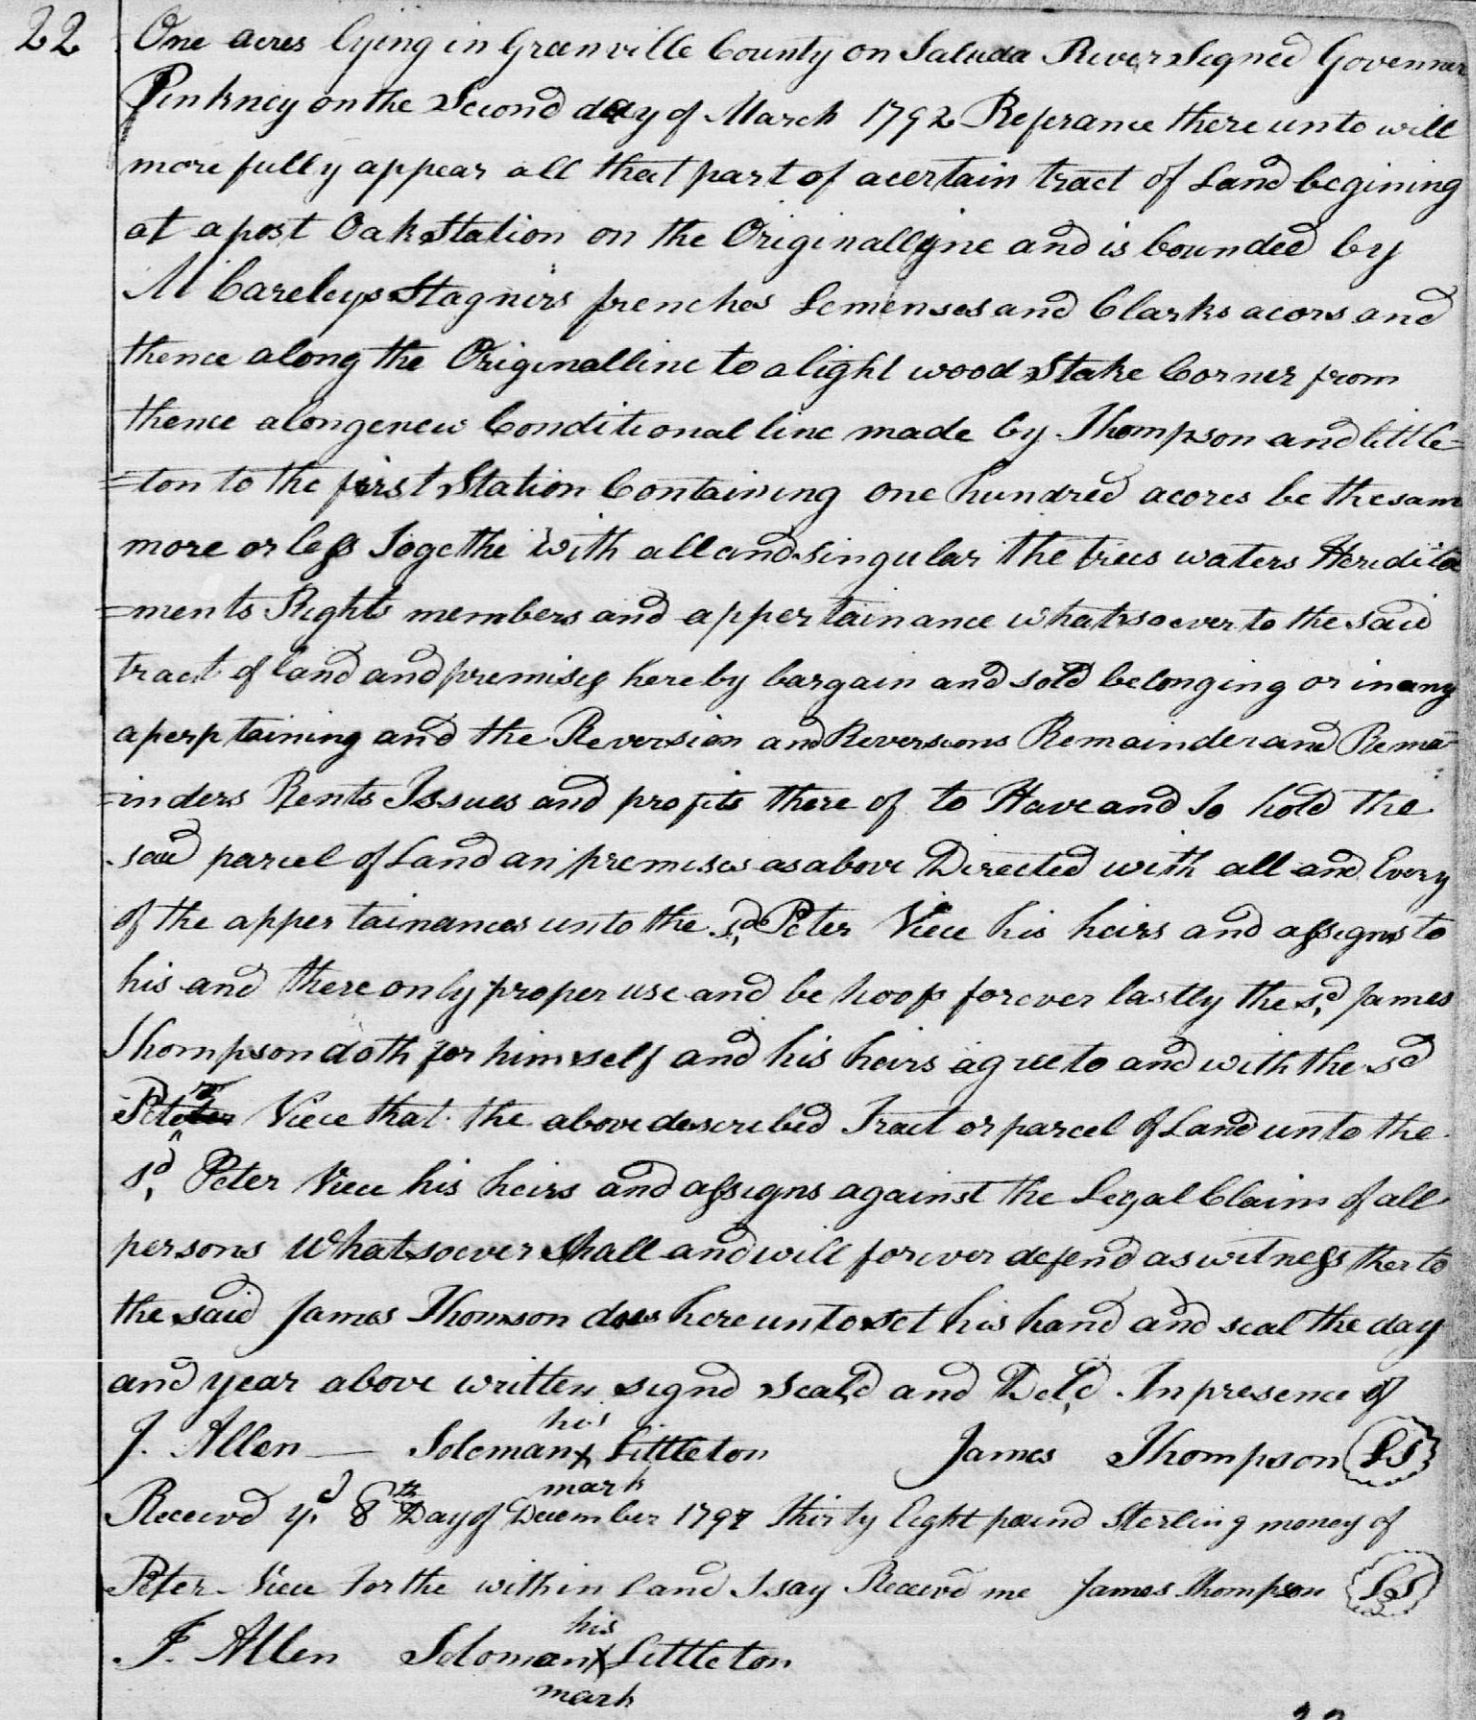 22 One acres lying in Greenville County on Saluda River Signed Govenner
Pinkney on the Second day of March 1792 Referance there unto will
more fully appear all that part of acertain tract of Land begining
at a post Oak Station on the Originall lyne and is bounded by
Stagnirs frenches Lemenses and Clarks acors and
thence along the Originall line to a light wood Stake Corner from
thence along enew Conditional line made by Thompson and little=
=ton to the first Station Containing one hundred acores be the same
more or less Togethe With all and singular the trees waters Heredita
=ments Rights members and appertainance whatsoever to the said
tract of land and premises hereby bargain and sold belonging or in any
aperptaining and the Reversion and Reversions Remainder and Rema=
=inders Rents Issues and profits there of to Have and To hold the
said parcel of Land an premises as above Directed with all and Every
of the appertainances unto the sd. Peter Viece his heirs and assigns to
his and there only proper use and be hoof forever lastly the sd. James
Thompson doth for himself and his heirs agree to and with the sd
Peter Viece that the above described Tract or parcel of Land unto the
sd. Peter Viece his heirs and assigns against the Legal Claim of all
persons Whatsoever Shall and will forever defend as witness ther to
the said James Thomson does here unto set his hand and seal the day
and year above written signd Seal,d and Del,d In presence of
his
J. Allen — Soloman X Littleton James Thompson LS
mark
Received yd. 8th Day of December 1797 thirty Eight pound Sterling money of
Peter Viece for the within land I say Receivd me James Thompson LS
his
J. Allen Soloman X Littleton
mark